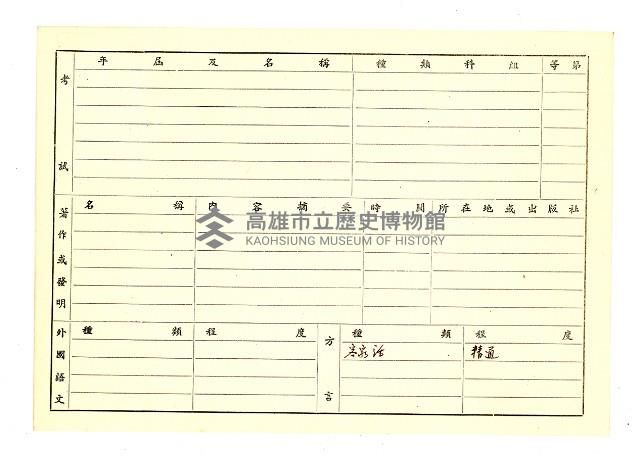 年屆及名稱 種類科組 等第
考試
名稱 內容摘要 時間 所在地或出版社
著作或發明
高雄市立歷史博物館
KAOHSIUNG MUSEUM OF HISTORY
外國語文 種類 程度 方言 種類 程度
客家話 精通